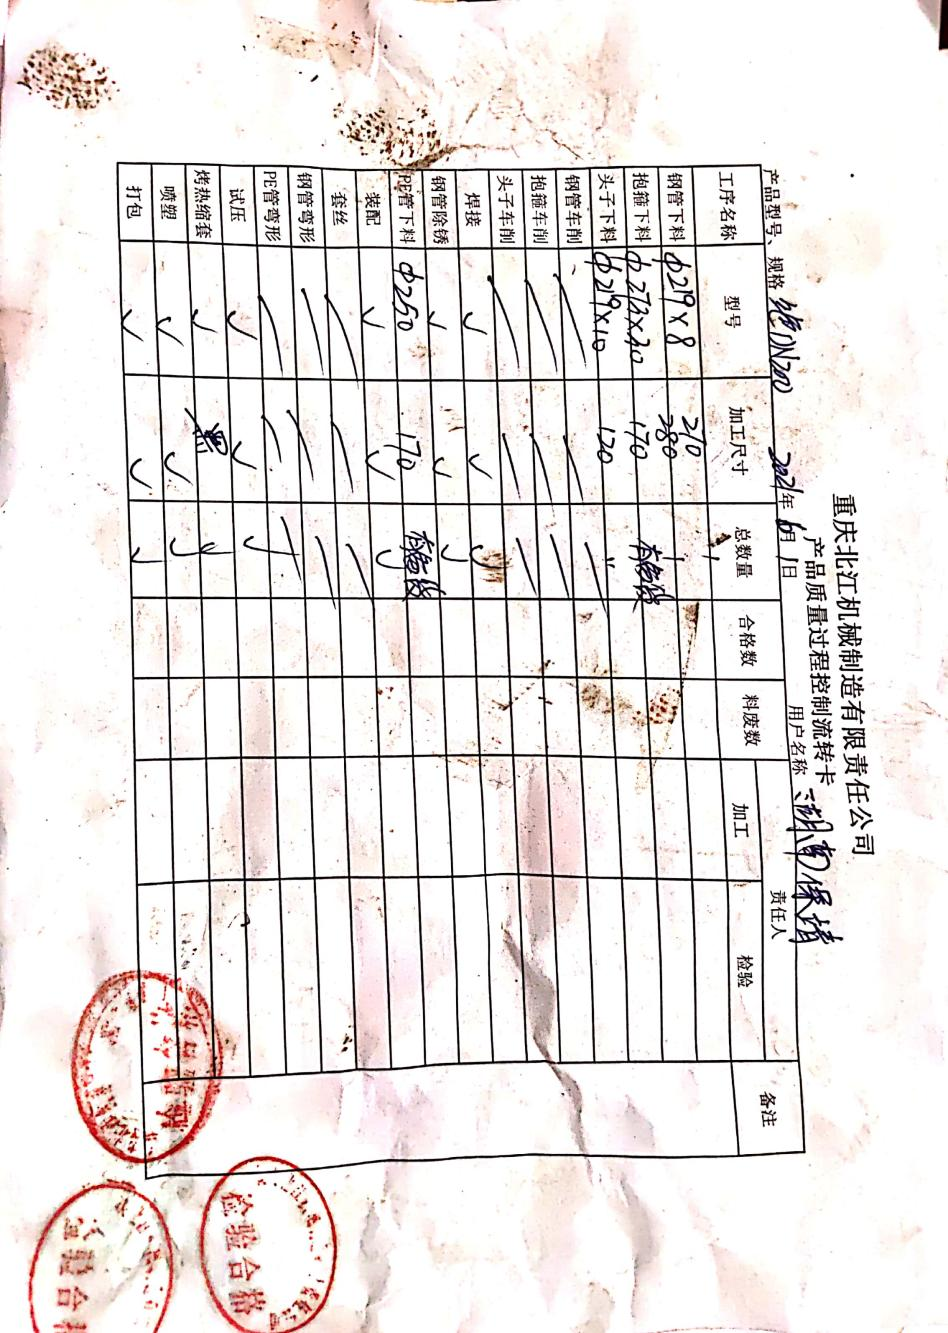 重庆北江机械制造有限责任公司
产品质量过程控制流转卡
产品型号、规格 DN200 2021年6月1日 用户名称 湖南保靖
工序名称 型号 加工尺寸 总数量 合格数 料废数 责任人 备注
加工 检验
210
钢管下料 φ219×8 280
抱箍下料 φ273×30 170
头子下料 φ219×10 120
钢管车削
抱箍车削
头子车削
焊接 ✓ ✓ ✓
钢管除锈 ✓ ✓ ✓
PE管下料 φ250 170
装配 ✓ ✓ ✓
套丝
钢管弯形
PE管弯形
试压 ✓ ✓ ✓
烤热缩套 ✓ 黑 ✓
喷塑 ✓ ✓ ✓
打包 ✓ ✓ ✓
检验合格
检验合格